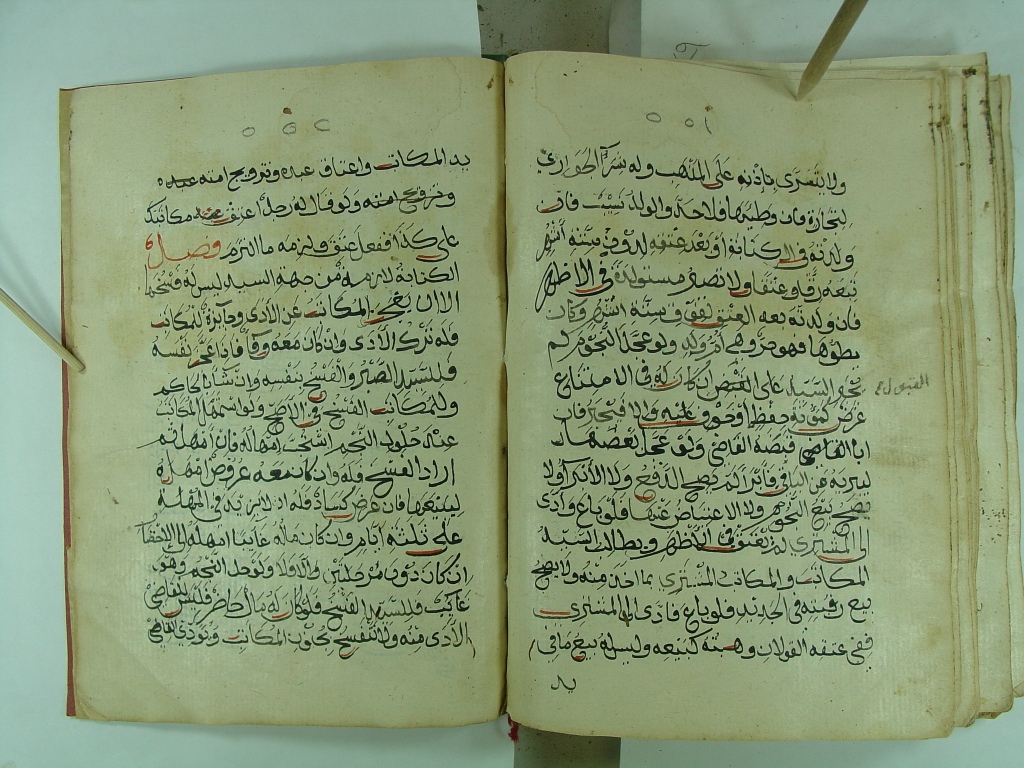 ٥٥١
ولا يتسرى باذنه على المذهب وله شرآ الجواري
لتجارة فان وطيها فلا حد والولد نسيب فان
ولدته في الكتابة او بعد عتقه لدون ستة اشهر
تبعه رقا وعتقا ولا تصير مستولدة في الاظهر
فان ولدته بعد العتق لفوق ستة اشهر وكان
يطؤها فهو حر وهي ام ولد ولو عجل النجوم لم
يجبر السيد على القبض ان كان له في الامتناع
غرض كمؤنة حفظه او خوف عليه والا فيجبر فان
ابا القاضي قبضه القاضي ولو عجل بعضها
ليبريه من الباقي فابرا لم يصح الدفع ولا الابرا ولا
يصح بيع النجوم ولا الاعتياض عنها فلو باع وادى
الى المشتري لم يعتق في الاظهر ويطالب السيد
المكاتب والمكاتب المشتري بما اخذ منه ولا يصح
بيع رقبته في الجديد فلو باع فادى الى المشتري
ففي عتقه القولان وهبته كبيعه وليس له بيع ما في
يد
القبول ع
٥٥٢
يد المكاتب واعتاق عبده وتزويج امته عبده
وتزويج امته ولو قال له رجل اعتق مكاتبك
على كذا ففعل عتق ولزمه ما التزم فصل
الكتابة لازمة من جهة السيد ليس له فسخها
الا ان يعجز المكاتب عن الادى وجايزة للمكاتب
فله ترك الادى وان كان معه وفآ فاذا عجز نفسه
فللسيد الصبر والفسخ بنفسه وان شا بالحاكم
وللمكاتب الفسخ في الاصح ولو استمهل المكاتب
عند حلول النجم استحب امهاله فان امهل ثم
اراد الفسخ فله وان كان معه عروض امهله
ليبيعها فان عرض كساد فله ان لا يزيد في المهلة
على ثلثة ايام وان كان ماله غايبا امهله الى الاحضآ
ان كان دون مرحلتين والا فلا ولو حل النجم وهو
غايب فللسيد الفسخ فلو كان له مال حاضر فليس للقاضي
الادى منه ولا تنفسخ بجنون المكاتب ويؤدي القاضي